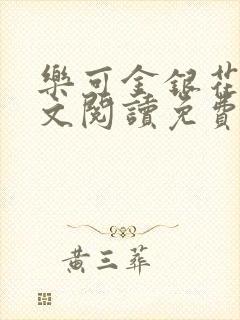 樂可金銀花
文閱讀免費
黃三葬